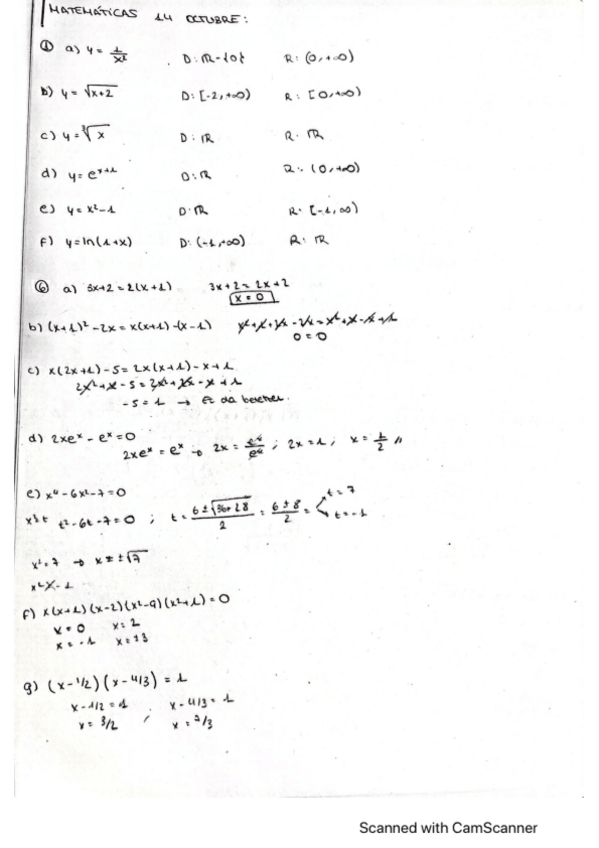 MATEMÁTICAS 14 OCTUBRE:
① a) y = 1/x² D: ℝ-{0} R: (0,+∞)
b) y = √x+2 D: [-2,+∞) R: [0,+∞)
c) y = ∛x D: ℝ R: ℝ
d) y = e^x+1 D: ℝ R: (0,+∞)
e) y = x²-1 D: ℝ R: [-1,∞)
f) y = ln(1+x) D: (-1,+∞) R: ℝ
⑥ a) 3x+2 = 2(x+1) 3x+2 = 2x+2
x = 0
b) (x+1)² - 2x = x(x+1) - (x-1) x²+1+2x-2x = x²+x-x+1
0 = 0
c) x(2x+1) - 5 = 2x(x+1) - x+1
2x²+x-5 = 2x²+2x-x+1
-5 = 1 → Ez da betetzen.
d) 2xe^x - e^x = 0
2xe^x = e^x → 2x = e^x/e^x ; 2x = 1 ; x = 1/2 //
e) x⁴-6x²-7 = 0
x²=t t²-6t-7=0 ; t = 6±√36+28/2 = 6±8/2 = t=7
t=-1
x²=7 → x = ±√7
x² -1
f) x(x+1)(x-2)(x²-9)(x²+1) = 0
x=0 x=2
x=-1 x=±3
g) (x-1/2)(x-4/3) = 1
x-1/2 = 1 , x-4/3 = 1
x = 3/2 x = 7/3
Scanned with CamScanner